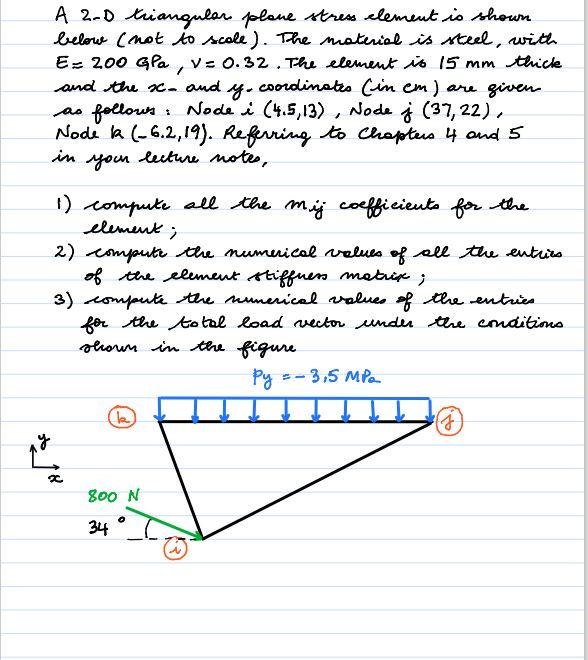 A 2-D triangular plane stress element is shown
below (not to scale). The material is steel, with
E = 200 GPa, ν = 0.32. The element is 15 mm thick
and the x- and y-coordinates (in cm) are given
as follows: Node i (4.5,13), Node j (37,22),
Node k (-6.2,19). Referring to Chapters 4 and 5
in your lecture notes,
1) compute all the mij coefficients for the
element;
2) compute the numerical values of all the entries
of the element stiffness matrix;
3) compute the numerical values of the entries
for the total load vector under the conditions
shown in the figure
Py = -3,5 MPa
k
j
y
x
800 N
34°
i